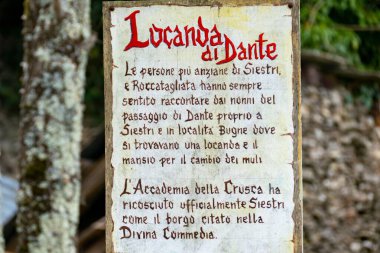 Locanda
di Dante
Le persone più anziane di Siestri,
e Roccatagliata hanno sempre
sentito raccontare dai nonni del
passaggio di Dante proprio a
Siestri e in località Bugne dove
si trovavano una locanda e il
mansio per il cambio dei muli
L'Accademia della Crusca ha
ricosciuto ufficialmente Siestri
come il borgo citato nella
Divina Commedia.